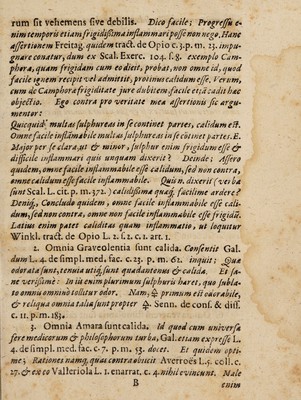 rum sit vehemens sive debilis. Dico facile; Progressu e-
nim temporis etiam frigidissima inflammari posse non nego. Hanc
assertionem Freitag. quidem tract. de Opio c. 3. p. m. 23. impu-
gnare conatur, dum ex Scal. Exerc. 104. s. 8. exemplo Cam-
phoræ, quam frigidam cum eo dicit, probat, non omne id, quod
facile ignem recipit vel admittit, protinus calidum esse. Verum,
cum de Camphoræ frigiditate jure dubitem, facile etiã cadit hæc
objectio. Ego contra pro veritate meæ assertionis sic argu-
mentor:
Quicquid multas sulphureas in se continet partes, calidum est.
Omne facile inflãmabile multas sulphureas in se cõtinet partes. E.
Major per se clara, ut & minor, sulphur enim frigidum esse &
difficile inflammari qui unquam dixerit? Deinde: Assero
quidem, omne facile inflammabile esse calidum, sed non contra,
omne calidum esse facile inflammabile. Quis n. dixerit (verba
sunt Scal. L. cit. p. m. 372.) calidissima quæq́; facilime ardere?
Deniq́; Concludo quidem, omne facile inflammabile esse cali-
dum, sed non contra, omne non facile inflammabile esse frigidũ.
Latius enim patet caliditas quam inflammatio, ut loquitur
Winkl. tract. de Opio L. 2. s. 2. c. 1. art. 1.
2. Omnia Graveolentia sunt calida. Consentit Gal.
dum L. 4. de simpl. med. fac. c. 23. p. m. 62. inquit; Quæ
odorata sunt, tenuia utiq́; sunt quadantenus & calida. Et sa-
ne verissime: In iis enim plurimum sulphuris hæret, quo subla-
to omnu omnino tollitur odor. Nam, 🜍 primum est odorabile,
& reliqua omnia talia sunt propter 🜍. Senn. de cons. & diss.
c. 11. p. m. 183.
3. Omnia Amara sunt calida. Id quod cum universa
fere medicorum & philosophorum turba, Gal. etiam expresse L.
4. de simpl. med. fac. c. 7. p. m. 53. docet. Et quidem opti-
me; Rationes namq́; quas contra obiicit Averroës L. 5. coll. c.
27. & ex eo Valleriola L. 1. enarrat. c. 4. nihil evincunt. Male
B enim